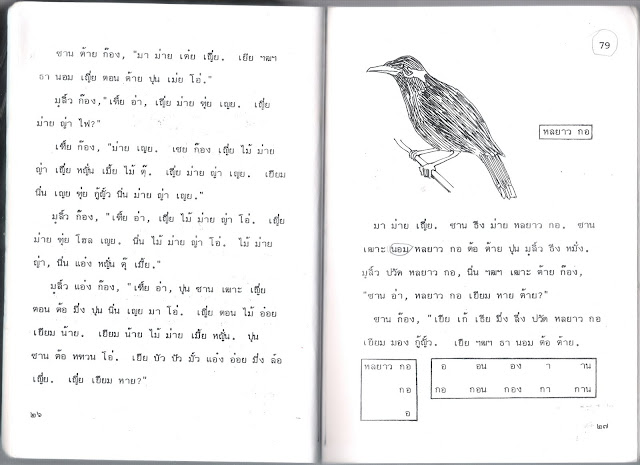 ซาน ต้าย ก๊อง, "มา ม่าย เต่ย เญี่ย. เยีย ฯฒฯ
ธา นอม เญี่ย ตอน ต้าย ปุน เม่ย โอ๋."
มูลิ้ว ก๊อง, "เที้ย อ๋า, เญี่ย ม่าย ทุ่ย เญย. เญี่ย
ม่าย ญ่า ไฟ?"
เที้ย ก๊อง, "ม่าย เญย. เซย ก๊อง เญี่ย ไม้ ม่าย
ญ่า เญี่ย หญั่น เมี้ย ไม้ ตุ๊. เญี่ย ม่าย ญ่า เญย. เยียม
นิ่น เญย ทุ่ย กู้ญั้ว นิ่น ม่าย ญ่า เญย."
มูลิ้ว ก๊อง, "เที้ย อ๋า, เญี่ย ไม้ ม่าย ญ่า โอ๋. เญี่ย
ม่าย ทุ่ย โฮล เญย. นิ่น ไม้ ม่าย ญ่า โอ๋. ไม้ ม่าย
ญ่า, นิ่น แอ๋ง หญั่น ตุ๊ เมี้ย."
มูลิ้ว แอ๋ง ก๊อง, "เที้ย อ๋า, ปุน ซาน เฒาะ เญี่ย
ตอน ต้อ มึ่ง ปุน นิ่น เญย มา โอ๋. เญี่ย ตอน ไม้ อ๋อย
เยียม น้าย. เยียม น้าย ไม้ ม่าย เมี้ย หญั่น. ปุน
ซาน ต้อ ททวน โอ๋. เยีย ปัว ปัว มั้ว แอ๋ง อ๋อย มึ่ง ล้อ
เญี่ย. เญี่ย เยียม หาย?"
๒๖
79
หลยาว กอ
มา ม่าย เญี่ย. ซาน ธึง ม่าย หลยาว กอ. ซาน
เฒาะ นอม หลยาว กอ ต้อ ต้าย ปุน มูลิ้ว ธึง หมั่ง.
มูลิ้ว ปวัด หลยาว กอ, นิ่น ฯฒฯ เฒาะ ต้าย ก๊อง,
"ซาน อ๋า, หลยาว กอ เยียม หาย ต้าย?"
ซาน ก๊อง, "เยีย เก้ เธีย มึ่ง ลึ่ง ปวัด หลยาว กอ
เยียม มอง กู้ญั้ว. เยีย ฯฒฯ ธา นอม ต้อ ต้าย.
หลยาว กอ
กอ
อ
อ อน อง า าน
กอ กอน กอง กา กาน
๒๗